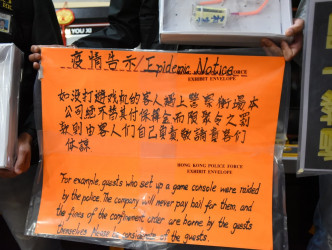 疫情告示/Epidemic Notice
FORCE
EXHIBIT ENVELOPE
如没打遊戏机的客人遇上警察衝場本
公司绝不帮其付保释金而限聚令之罚
款则由客人们自己負責敬請貴客们
体諒
HONG KONG POLICE FORCE
EXHIBIT ENVELOPE
For example, guests who set up a game console were raided
by the police. The company will never pay bail for them, and
the fines of the confinement order are borne by the guests
themselves. Please be considerate of the guests.